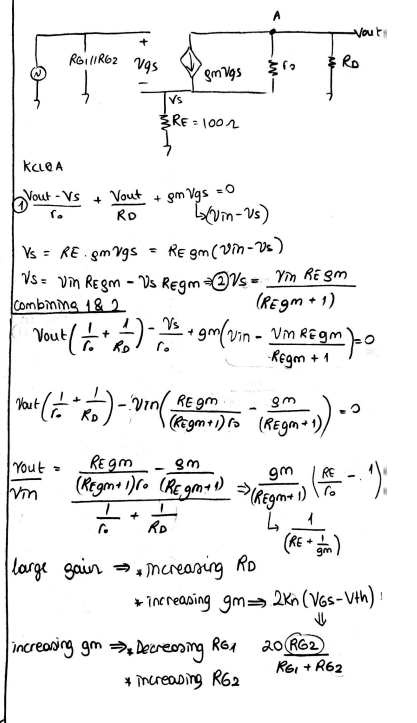 A
Vout
RG1//RG2
+
Vgs
-
gmVgs
ro
RD
Vs
RE = 100Ω
KCL@A
① (Vout - Vs)/ro + Vout/RD + gmVgs = 0
↳(Vin - Vs)
Vs = RE · gmVgs = REgm(Vin - Vs)
Vs = Vin REgm - Vs REgm ⇒ ② Vs = Vin REgm/(REgm + 1)
Combining 1 & 2
Vout(1/ro + 1/RD) - Vs/ro + gm(Vin - Vin REgm/(REgm + 1)) = 0
Vout(1/ro + 1/RD) - Vin(REgm/((REgm+1)ro) - gm/(REgm+1)) = 0
Vout/Vin = (REgm/((REgm+1)ro) - gm/(REgm+1))/(1/ro + 1/RD) ⇒ gm/(REgm+1) (RE/ro - 1)
↳ 1/(RE + 1/gm)
large gain ⇒ * increasing RD
* increasing gm ⇒ 2Kn(VGS - Vth)
⇓
increasing gm ⇒ * Decreasing RG1 20(RG2)/(RG1 + RG2)
* increasing RG2